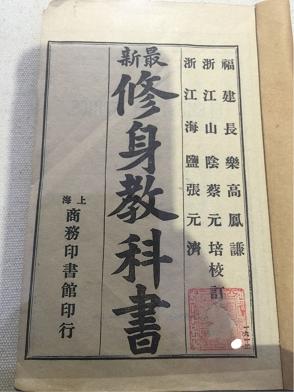 福建長樂高鳳謙
浙江山陰蔡元培校訂
浙江海鹽張元濟
最新
修身教科書
上海
商務印書館印行